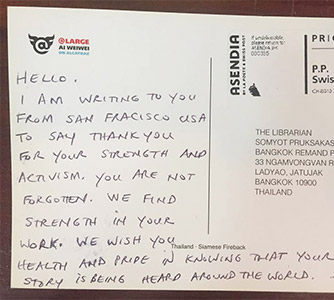 @LARGE
AI WEIWEI
ON ALCATRAZ
HELLO.
I AM WRITING TO YOU
FROM SAN FRACISCO USA
TO SAY THANK YOU
FOR YOUR STRENGTH AND
ACTIVISM. YOU ARE NOT
FORGOTTEN. WE FIND
STRENGTH IN YOUR
WORK. WE WISH YOU
HEALTH AND PRIDE IN KNOWING THAT YOUR
STORY IS BEING HEARD AROUND THE WORLD.
Thailand · Siamese Fireback
ASENDIA
BY LA POSTE & SWISS POST
If undeliverable
please return to:
PRIO
P.P.
Swis
THE LIBRARIAN
SOMYOT PRUKSAKAS
BANGKOK REMAND P
33 NGAMVONGVAN R
LADYAO, JATUJAK
BANGKOK 10900
THAILAND